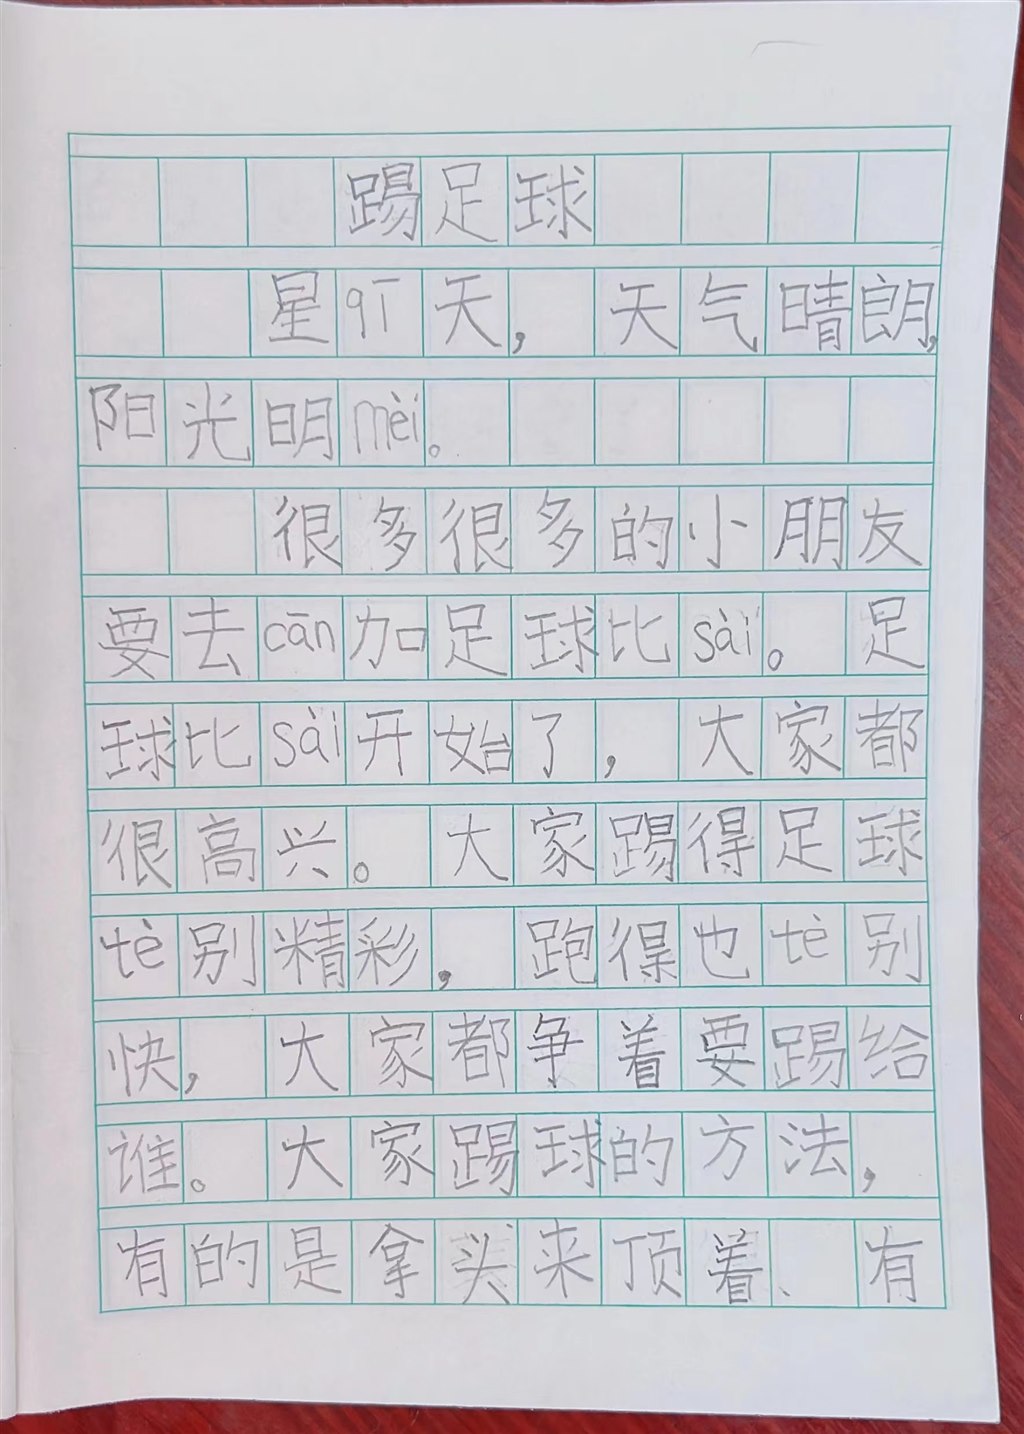 踢足球
星qī天，天气晴朗，
阳光明mèi。
很多很多的小朋友
要去cān加足球比sài。足
球比sài开始了，大家都
很高兴。大家踢得足球
tè别精彩，跑得也tè别
快，大家都争着要踢给
谁。大家踢球的方法，
有的是拿头来顶着、有